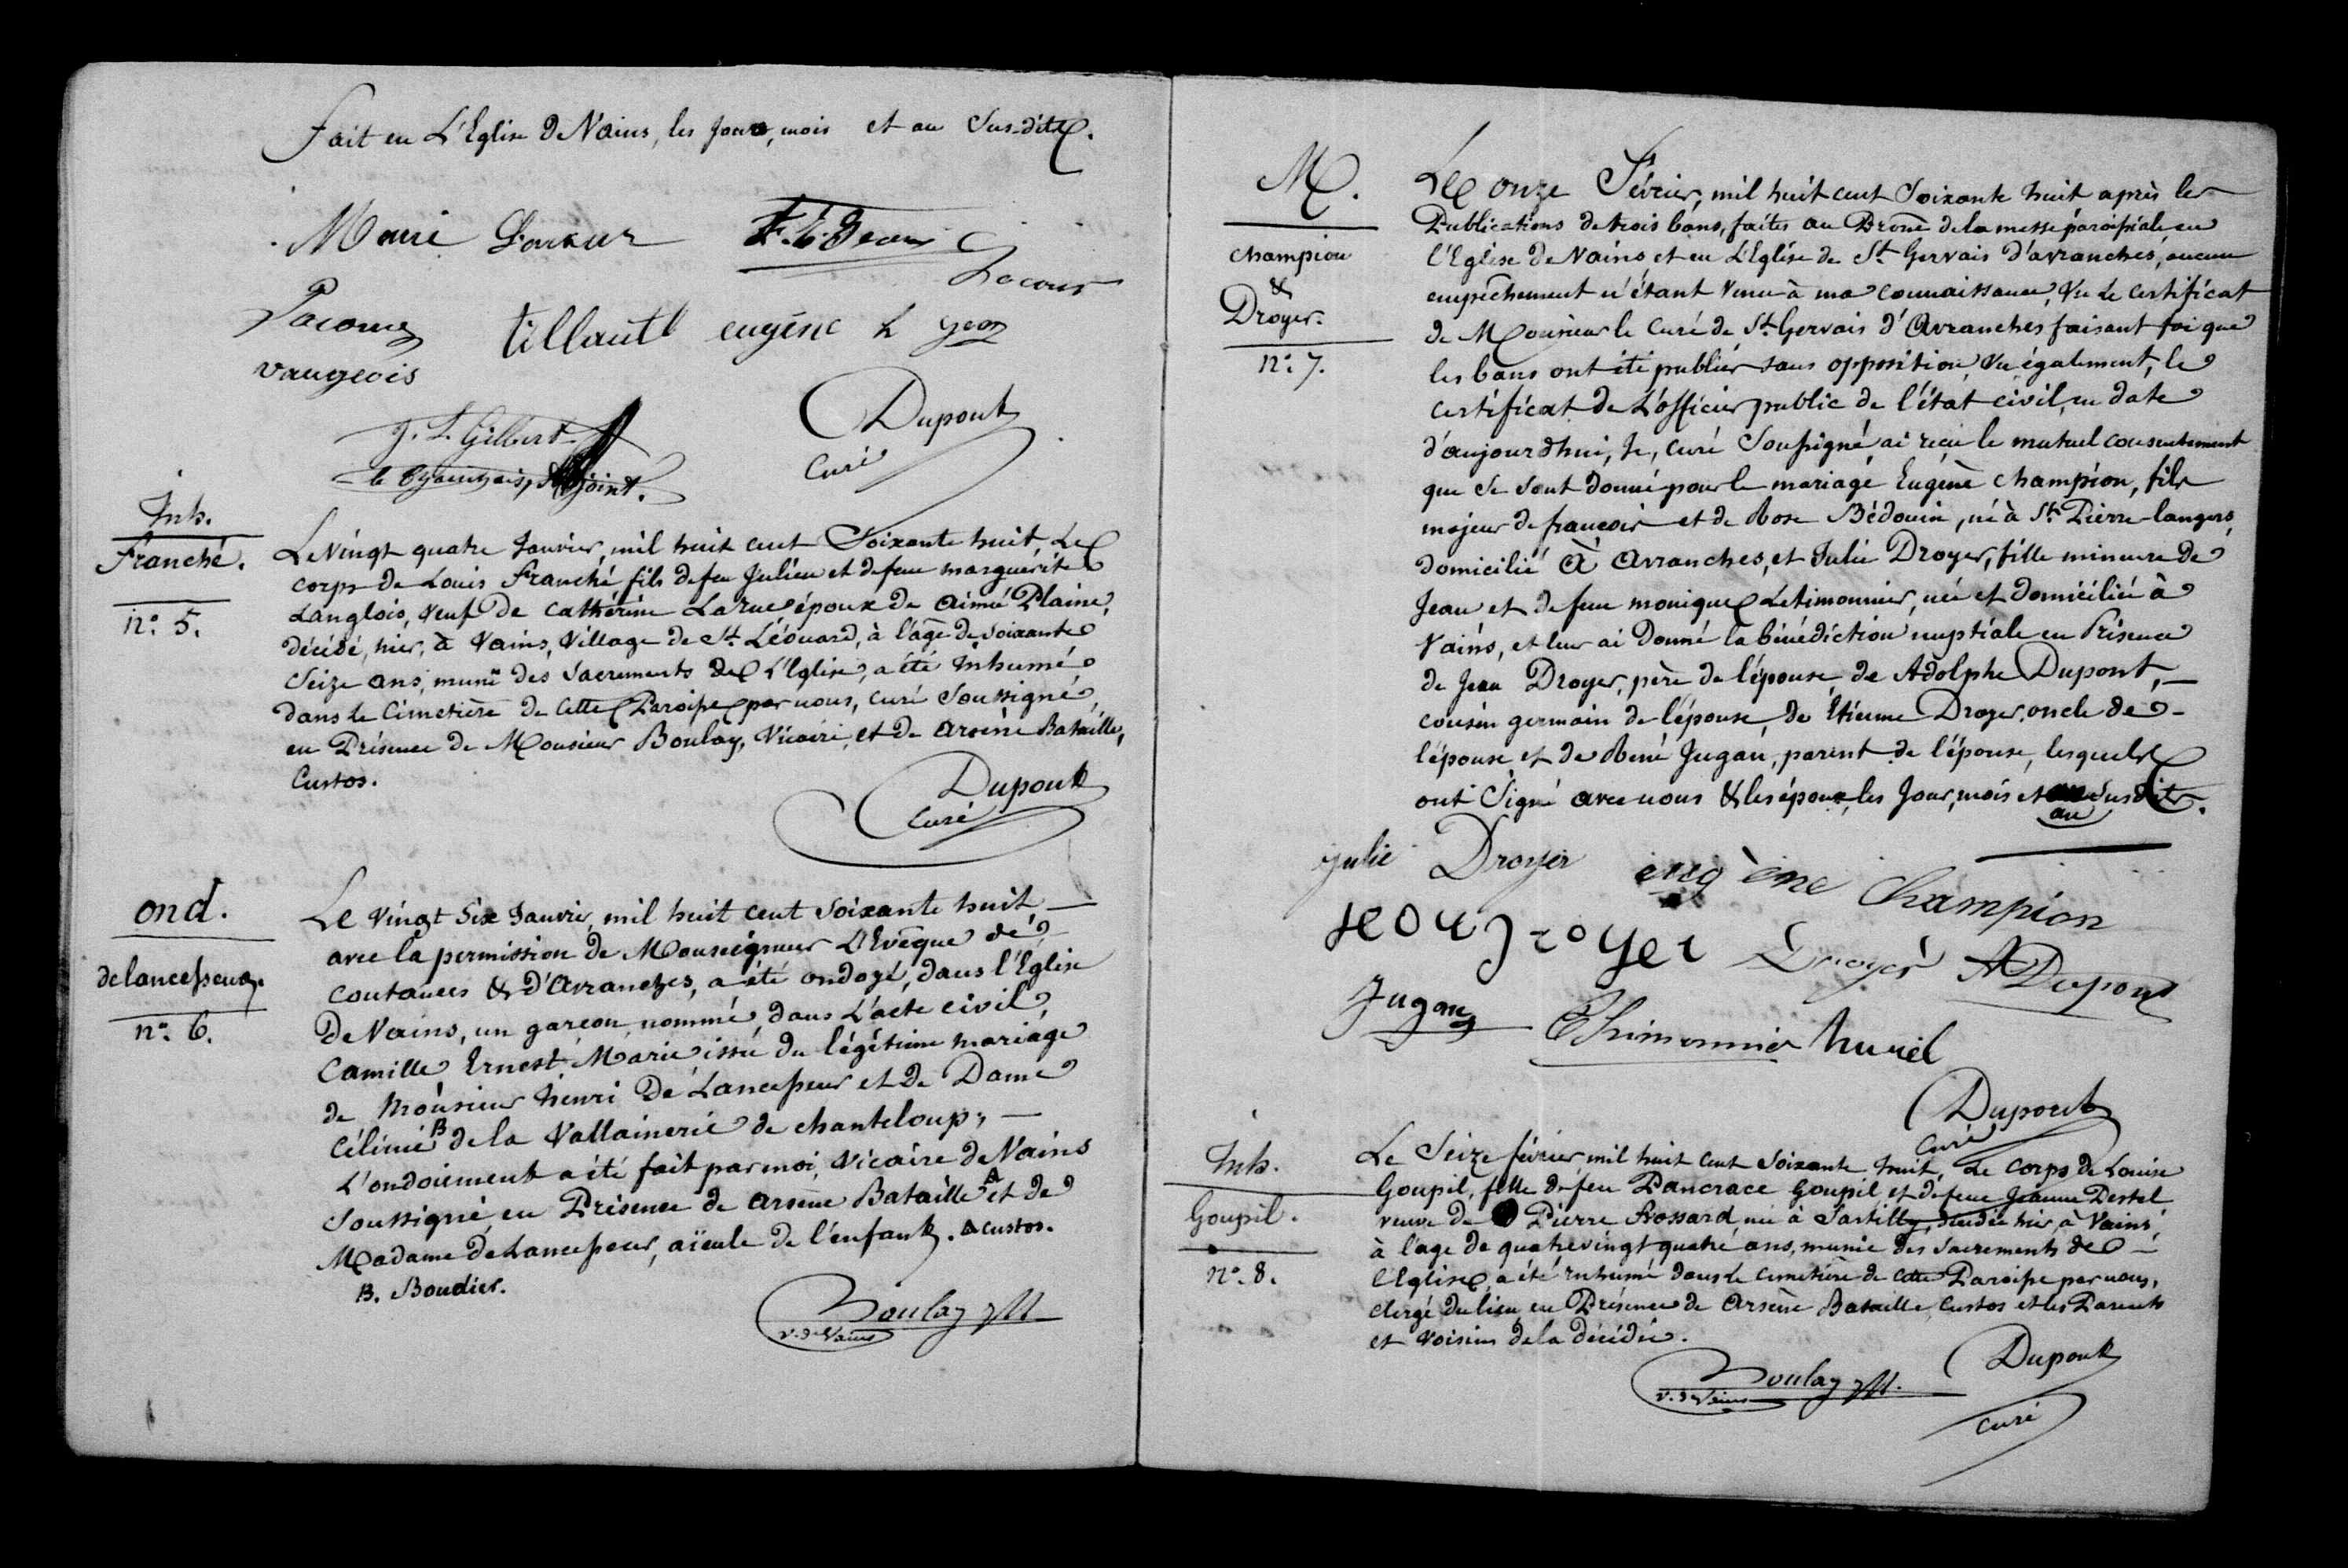 fait en L'Eglise de Vains, les jour, mois et an Sus-dits.
Marie F. L. Jean
Lacour
Pacome tillault eugène
vaugeois
J. L. Gilbert Dupont
adjoint. Curé
Inh.
franché.
n°. 5.
Le Vingt quatre Janvier, mil huit cent Soixante huit, Le
corps de Louis Franché fils de feu Julien et de feue marguerite
Langlois, veuf de cathérine Larue époux de aimée Plaine,
décédé, hier, à Vains, Village de St. Léonard, à l'âge de soixante
Seize ans, muni des Sacrements de L'Eglise, a été Inhumé
dans le Cimetière de cette Paroisse par nous, curé Soussigné,
en Présence de Monsieur Boulay, Vicaire, et de arsène Bataille,
Custos.
Dupont
Curé
ond.
delancesseur.
n°. 6.
Le vingt Six Janvier, mil huit cent soixante huit, —
avec la permission de Monseigneur L'Evêque de
coutances & d'Avranches, a été ondoyé, dans l'Eglise
de Vains, un garçon nommé dans L'acte civil,
Camille Ernest Marie issu du légitime mariage
de Monsieur henri De Lancesseur et de Dame
Célinie B de la Vallainerie de chanteloup, —
L'ondoiement a été fait par moi, Vicaire de Vains
Soussigné, en Présence de arsène Bataille A et de
Madame de Lancesseur, aïeule de l'enfant. A custos.
B. Boudier.
Boulay
v. de Vains
M.
champion
&
Droyer.
n°. 7.
Le onze Février, mil huit cent Soixante huit après les
Publications de trois bans, faites au Prône de la messe paroissiale en
l'Eglise de Vains et en L'Eglise de St. Gervais d'avranches, aucun
empêchement n'étant venu à ma connaissance, Vu le certificat
de Monsieur le Curé de St. Gervais d'Avranches faisant foi que
les bans ont été publiés sans opposition, Vu également, le
certificat de L'officier public de l'état civil, en date
d'aujourd'hui, Je, curé Soussigné, ai reçu le mutuel consentement
que se sont donné pour le mariage Eugène champion, fils
majeur de françois et de Rose Bédouin, né à St. Pierre-langers,
domicilié à Avranches, et Julie Droyer, fille mineure de
Jean et de feue monique Letimonnier, née et domiciliée à
Vains, et leur ai donné la bénédiction nuptiale en Présence
de Jean Droyer, père de l'épouse, de Adolphe Dupont, —
cousin germain de l'épouse, de Etienne Droyer, oncle de —
l'épouse, et de René Jugan, parent de l'épouse, lesquels
ont Signé avec nous & les époux, les Jour, mois et an susdits.
an
julie Droyer eugène Champion
jean Droyer Droyer A Dupont
Jugan hurel
Dupont
Curé
Inh.
Goupil.
n°. 8.
Le Seize février mil huit cent soixante huit, Le corps de Louise
Goupil, fille de feu Pancrace Goupil et de feue Jeanne Destel
veuve de Pierre Frossard, née à Sartilly, décédée hier, à Vains,
à l'age de quatre vingt quatre ans, munie des Sacrements de —
l'Eglise, a été inhumé dans le cimetière de cette Paroisse par nous,
clergé du lieu, en Présence de Arsène Bataille, Custos et les Parents
et voisins de la décédée.
Boulay Dupont
v. de Vains curé